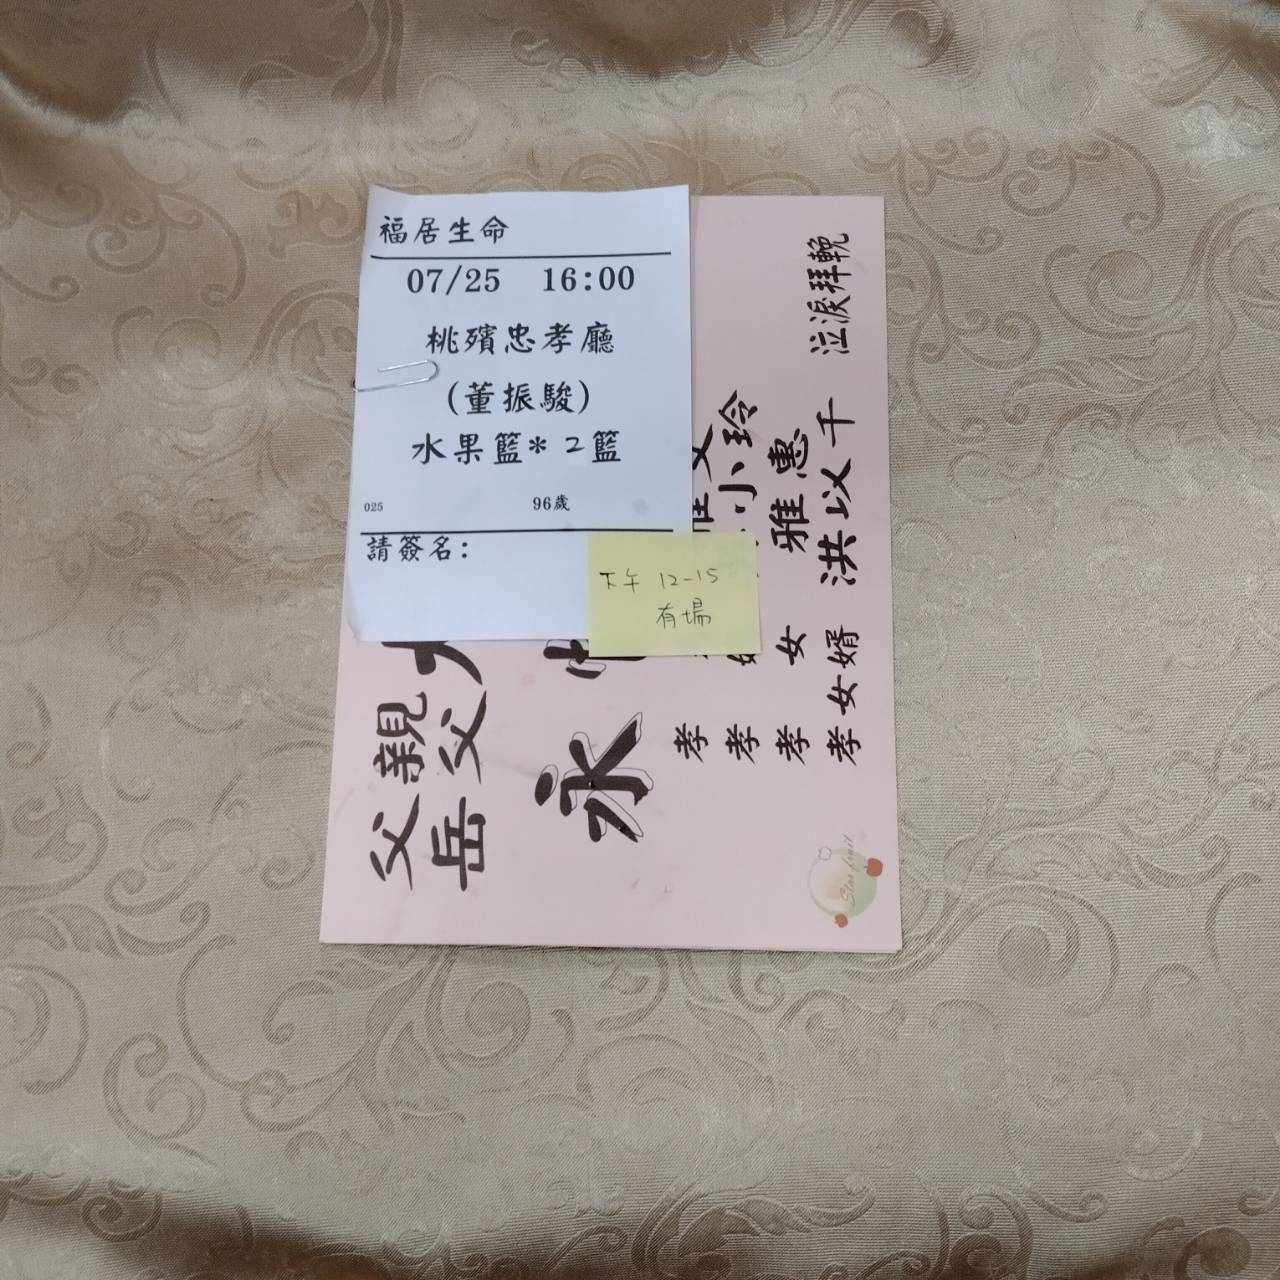 福居生命
07/25 16:00
桃殯忠孝廳
(董振駿)
水果籃* 2籃
025 96歲
請簽名:
下午 12-15
有場
父親
岳父
永
孝
孝 小玲
孝 女 雅惠
孝女婿 洪以千
泣淚拜輓
Star fruit